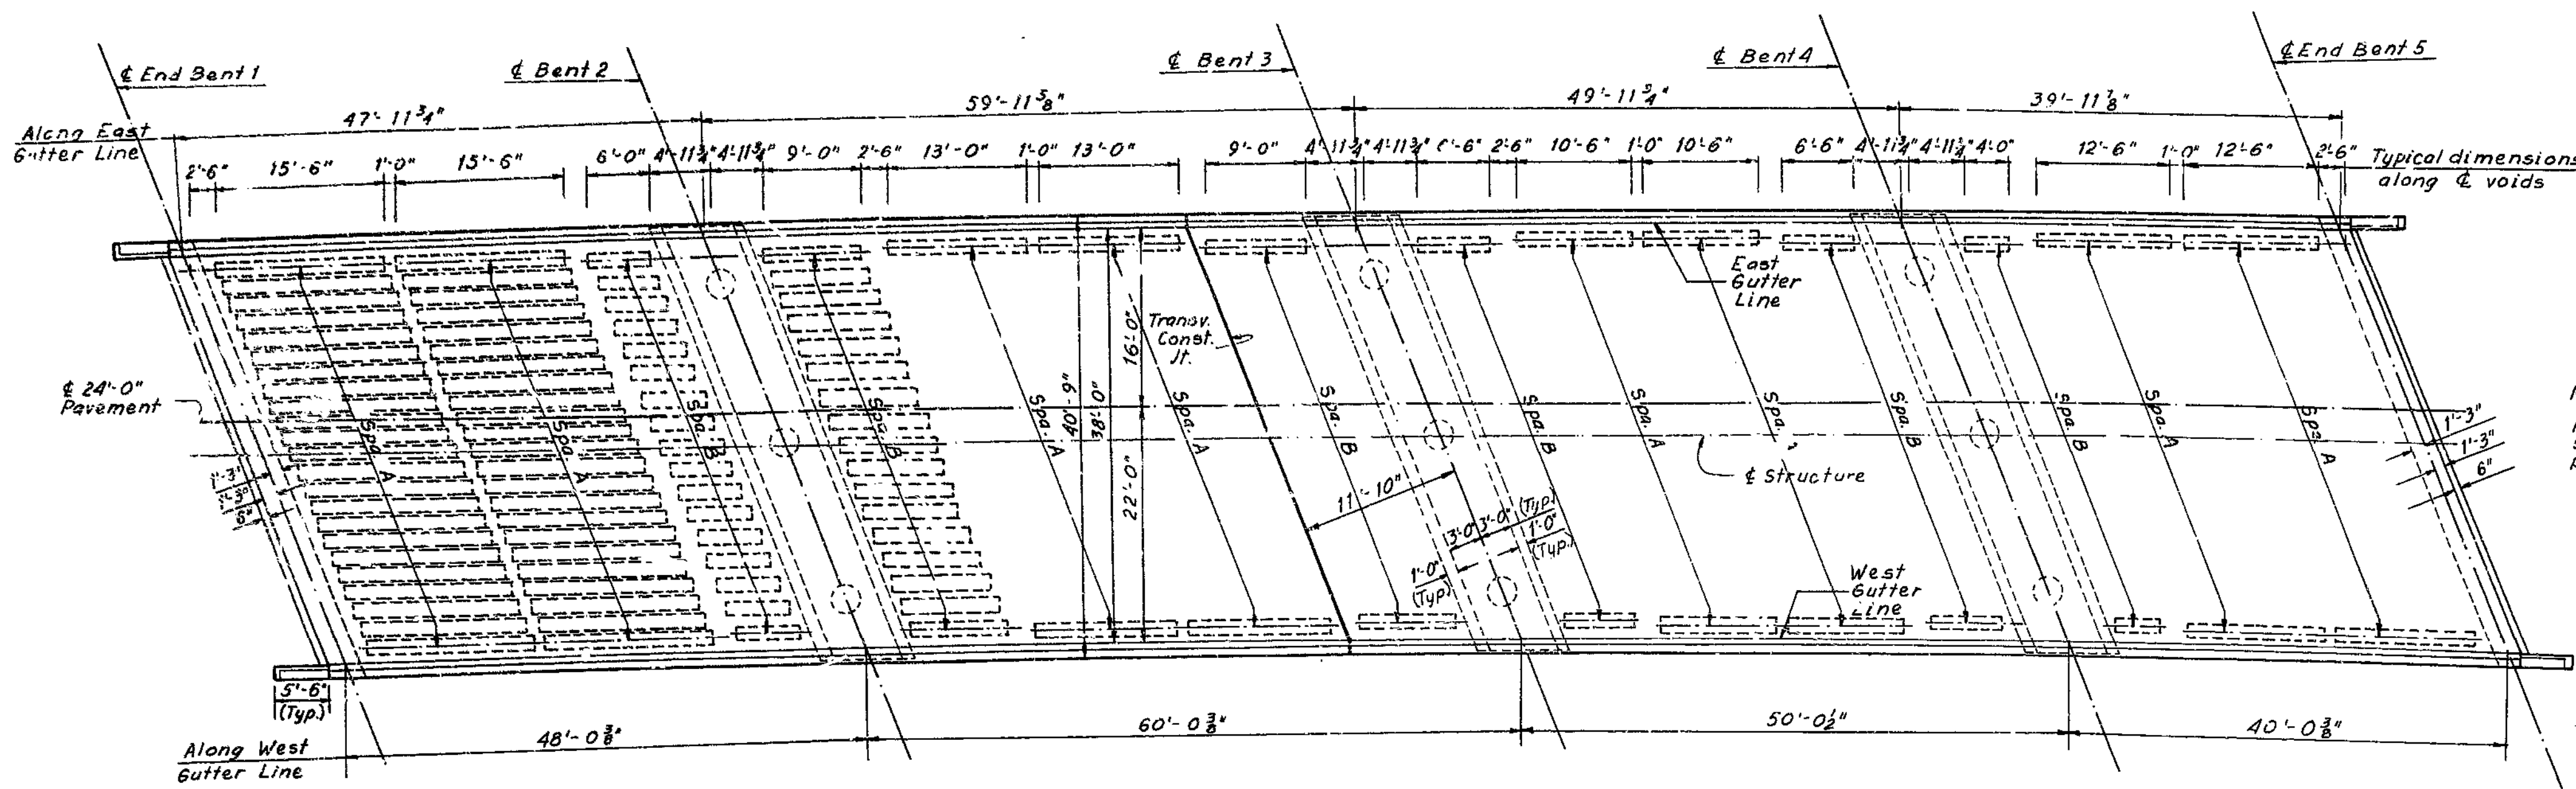 ℄ End Bent 1
℄ Bent 2
℄ Bent 3
℄ Bent 4
℄ End Bent 5
Along East
Gutter Line
47'-11 3/4"
59'-11 5/8"
49'-11 3/4"
39'-11 7/8"
2'-6" 15'-6" 1'-0" 15'-6" 6'-0" 4'-11 3/4" 4'-11 3/4" 9'-0" 2'-6" 13'-0" 1'-0" 13'-0" 9'-0" 4'-11 3/4" 4'-11 3/4" 2'-6" 10'-6" 1'-0" 10'-6" 6'-6" 4'-11 3/4" 4'-11 3/4" 4'-0" 12'-6" 1'-0" 12'-6" 2'-6"
Typical dimensions
along ℄ voids
East
Gutter
Line
Transv.
Const.
Jt.
16'-0"
40'-9"
38'-0"
22'-0"
℄ 24'-0"
Pavement
Spa. A
Spa. A
Spa. B
Spa. B
Spa. A
Spa. A
Spa. B
Spa. B
Spa. A
Spa.
Spa. B
Spa. B
Spa. A
Spa. A
℄ Structure
1'-3"
1'-3"
6"
1'-3"
1'-3"
6"
11'-10"
3'-0" 3'-0" (Typ.)
1'-0"
(Typ.)
1'-0"
(Typ.)
West
Gutter
Line
5'-6"
(Typ.)
Along West
Gutter Line
48'-0 3/8"
60'-0 3/8"
50'-0 1/2"
40'-0 3/8"